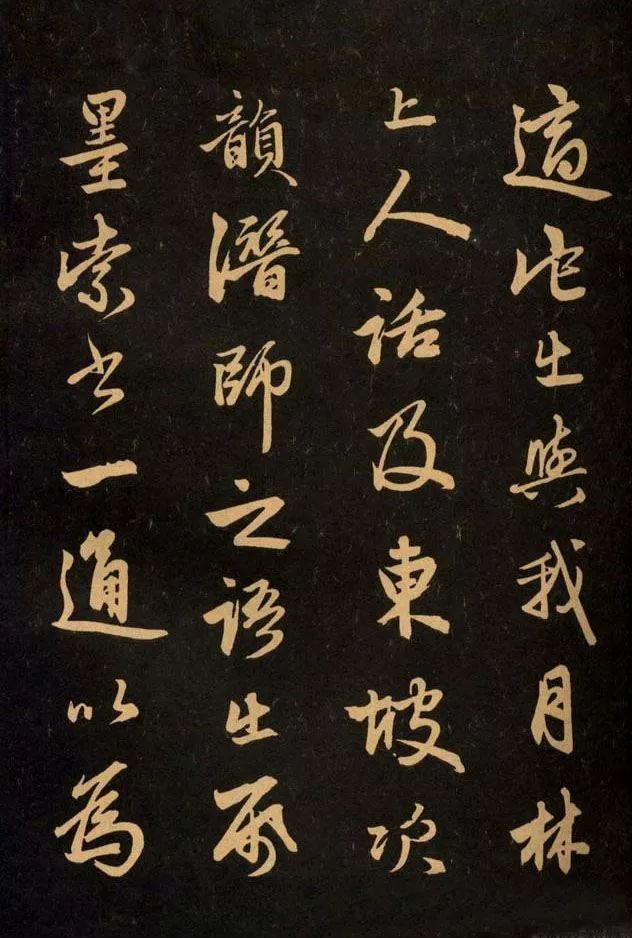 適出與我月林
上人話及東坡次
韻潛師之語出帋
墨索書一通以為